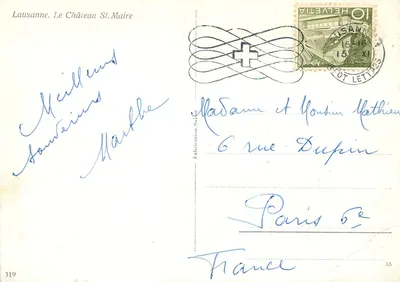 Lausanne. Le Château St. Maire
HELVETIA
10
Meilleurs
souvenirs
Marthe
Madame et Monsieur Mathieu
6 rue Dupin
Paris 6e
France
319